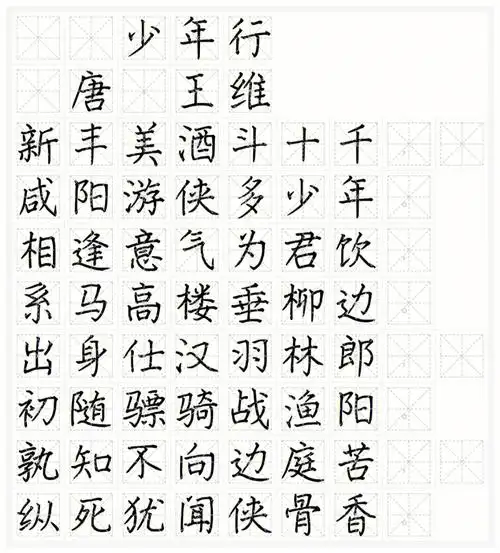 少年行
唐 王维
新丰美酒斗十千
咸阳游侠多少年
相逢意气为君饮
系马高楼垂柳边
出身仕汉羽林郎
初随骠骑战渔阳
孰知不向边庭苦
纵死犹闻侠骨香